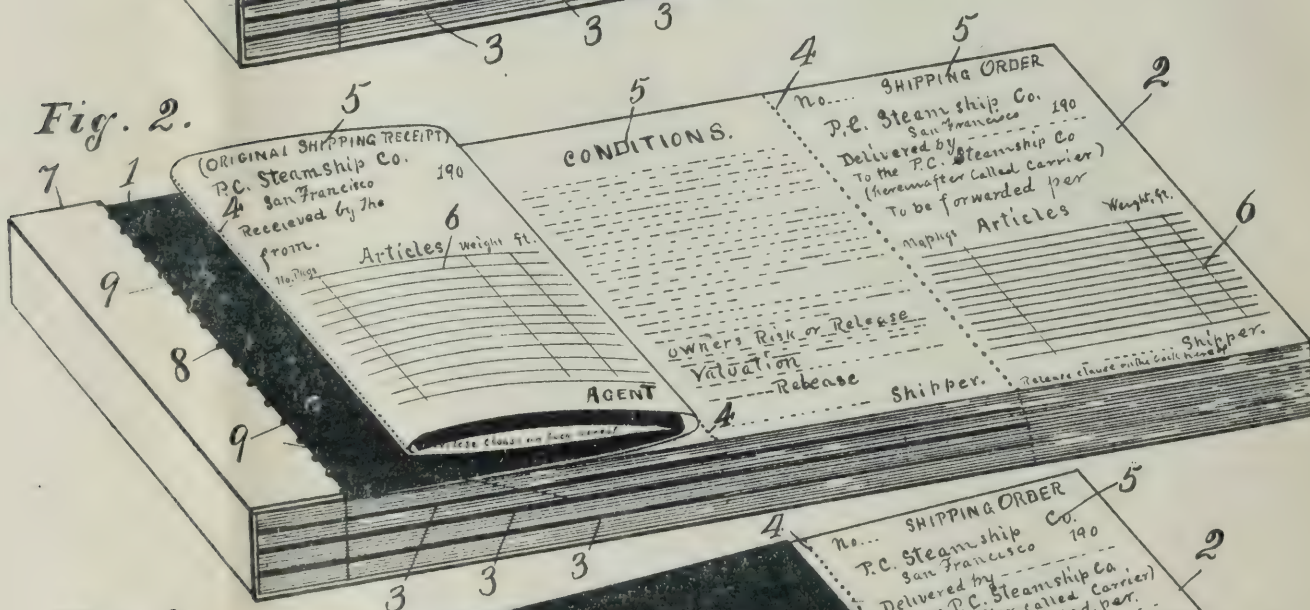 3 3 3
Fig. 2.
7 1 5 5 4 5 2
(ORIGINAL SHIPPING RECEIPT)
P.C. Steamship Co.
San Francisco 190
4
Receieved by the
from.
6
No. Pkgs Articles Weight ft.
AGENT
CONDITIONS.
Owners Risk or Release
Valuation
Release
Shipper.
4
No.... SHIPPING ORDER
P.C. Steam ship Co.
San Francisco 190
Delivered by
To the P.C. Steamship Co
(hereinafter Called Carrier)
To be forwarded per
No pkgs Articles Weight, ft.
6
Shipper.
Release clause on the back hereof
9
8
9
3 3 3
4 5 2
No... SHIPPING ORDER
P.C. Steam ship Co.
San Francisco 190
Delivered by
P.C. Steamship Co.
called Carrier)
per.